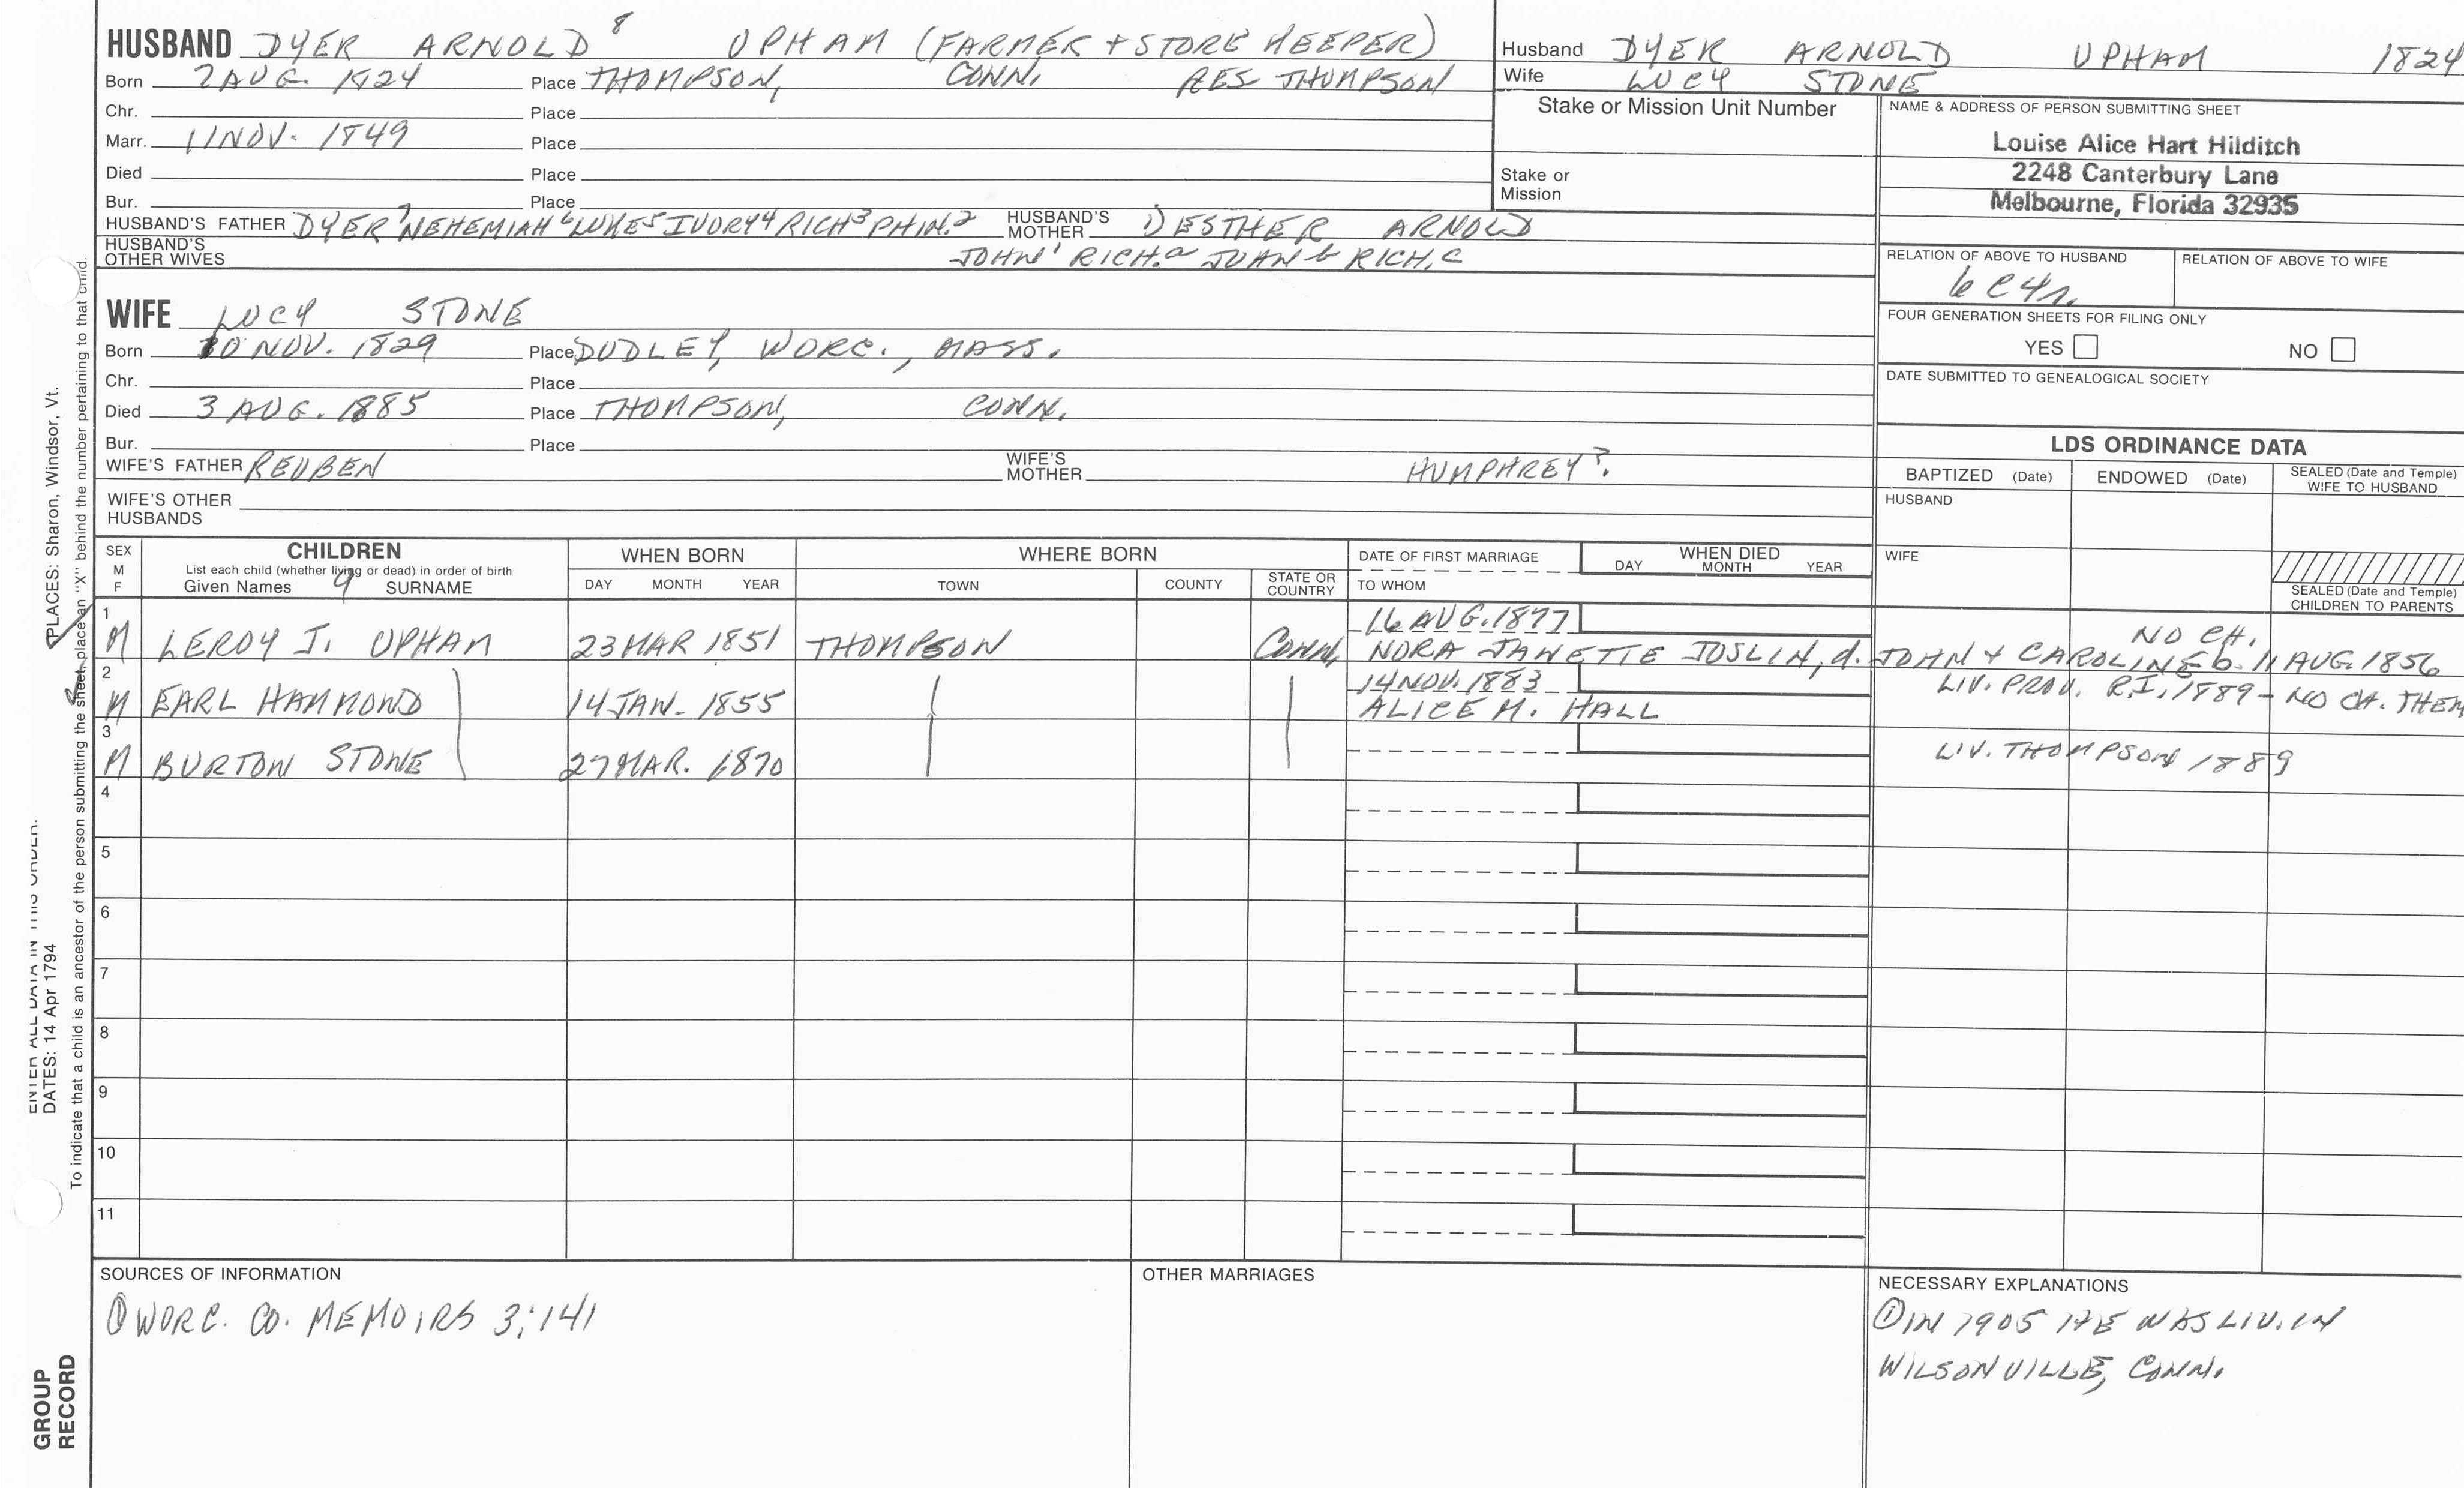 HUSBAND DYER ARNOLD 8 UPHAM (FARMER + STORE KEEPER)
Born 7 AUG. 1824 Place THOMPSON, CONN. RES THOMPSON
Chr. Place
Marr. 11 NOV. 1849 Place
Died Place
Bur. Place
HUSBAND'S FATHER DYER 7 NEHEMIAH 6 LUKE 5 IVORY 4 RICH 3 PHIN. 2 HUSBAND'S MOTHER 1) ESTHER ARNOLD
HUSBAND'S OTHER WIVES JOHN 1 RICH. a JOHN b RICH. c
WIFE LUCY STONE
Born 10 NOV. 1829 Place DUDLEY, WORC., MASS.
Chr. Place
Died 3 AUG. 1885 Place THOMPSON, CONN.
Bur. Place
WIFE'S FATHER REUBEN WIFE'S MOTHER HUMPHREY?
WIFE'S OTHER HUSBANDS
Husband DYER ARNOLD UPHAM 1824
Wife LUCY STONE
Stake or Mission Unit Number
Stake or Mission
NAME & ADDRESS OF PERSON SUBMITTING SHEET
Louise Alice Hart Hilditch
2248 Canterbury Lane
Melbourne, Florida 32935
RELATION OF ABOVE TO HUSBAND RELATION OF ABOVE TO WIFE
6C4r.
FOUR GENERATION SHEETS FOR FILING ONLY
YES NO
DATE SUBMITTED TO GENEALOGICAL SOCIETY
LDS ORDINANCE DATA
BAPTIZED (Date) ENDOWED (Date) SEALED (Date and Temple) WIFE TO HUSBAND
HUSBAND
WIFE
SEALED (Date and Temple) CHILDREN TO PARENTS
SEX M F
CHILDREN
List each child (whether living or dead) in order of birth
Given Names 9 SURNAME
WHEN BORN
DAY MONTH YEAR
WHERE BORN
TOWN COUNTY STATE OR COUNTRY
DATE OF FIRST MARRIAGE
TO WHOM
WHEN DIED
DAY MONTH YEAR
1 16 AUG. 1877 NO CH.
M LEROY J. UPHAM 23 MAR 1851 THOMPSON CONN. NORA JANETTE JOSLIN, d. JOHN + CAROLINE b. 11 AUG. 1856
2 14 NOV. 1883 LIV. PROV. R.I., 1889 - NO CH. THEN
M EARL HAMMOND 14 JAN. 1855 ALICE M. HALL
3
M BURTON STONE 27 MAR. 1870 LIV. THOMPSON 1889
4
5
6
7
8
9
10
11
SOURCES OF INFORMATION
① WORC. CO. MEMOIRS 3:141
OTHER MARRIAGES
NECESSARY EXPLANATIONS
① IN 1905 HE WAS LIV. IN
WILSONVILLE, CONN.
ENTER ALL DATA IN THIS ORDER.
DATES: 14 Apr 1794
PLACES: Sharon, Windsor, Vt.
To indicate that a child is an ancestor of the person submitting the sheet, place an "X" behind the number pertaining to that child.
GROUP
RECORD